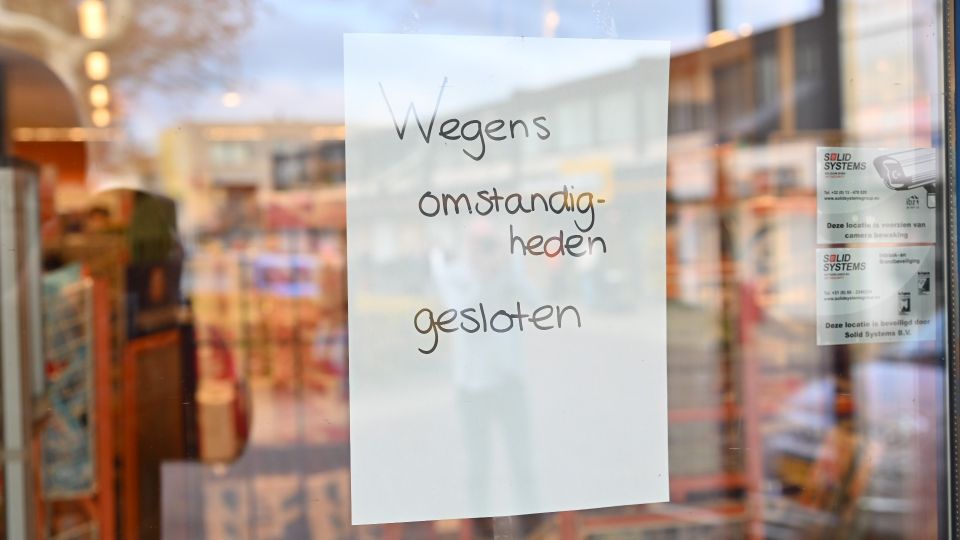 Wegens
omstandig-
heden
gesloten
SOLID
SYSTEMS
www.solidsystemsgroup.eu
Deze locatie is voorzien van
camera bewaking
SOLID
SYSTEMS
Inbraak- en
Brandbeveiliging
www.solidsystemsgroup.eu
Deze locatie is beveiligd door
Solid Systems B.V.